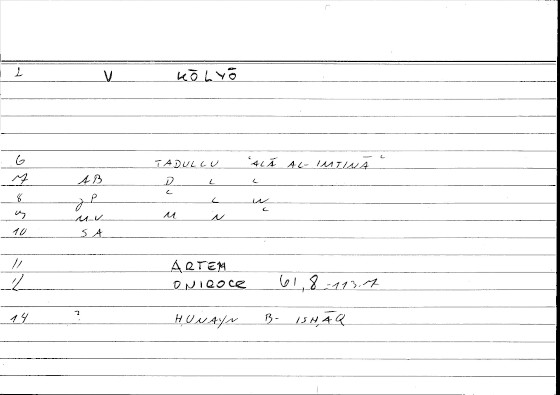 1 V KŌLYŌ
6 TADULLU ʿALĀ AL-IMTINĀʿ
7 AB D L L
8 gP ʿ L W
9 MU M N ʿ
10 SA
11 ARTEM
12 ONIROCR 61,8 = 113.7
14 ? HUNAYN B- ISHĀQ